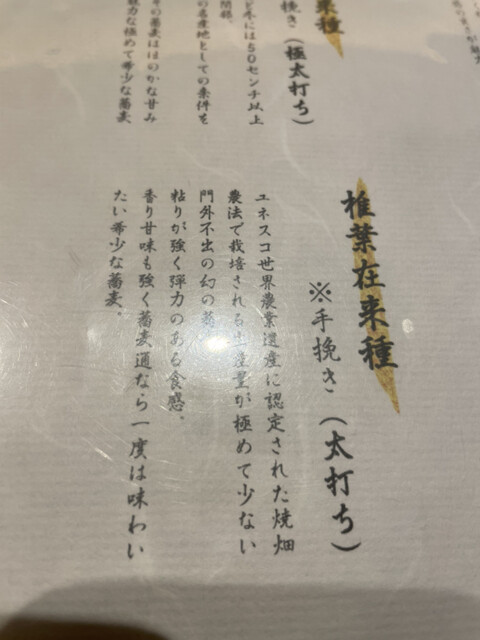 来種
挽き（極太打ち）
冬には50センチ以上
の名産地としての条件を
の蕎麦はほのかな甘み
魅力な極めて希少な蕎麦
椎葉在来種
※手挽き（太打ち）
ユネスコ世界農業遺産に認定された焼畑
農法で栽培される生産量が極めて少ない
門外不出の幻の蕎
粘りが強く弾力のある食感。
香り甘味も強く蕎麦通なら一度は味わい
たい希少な蕎麦。